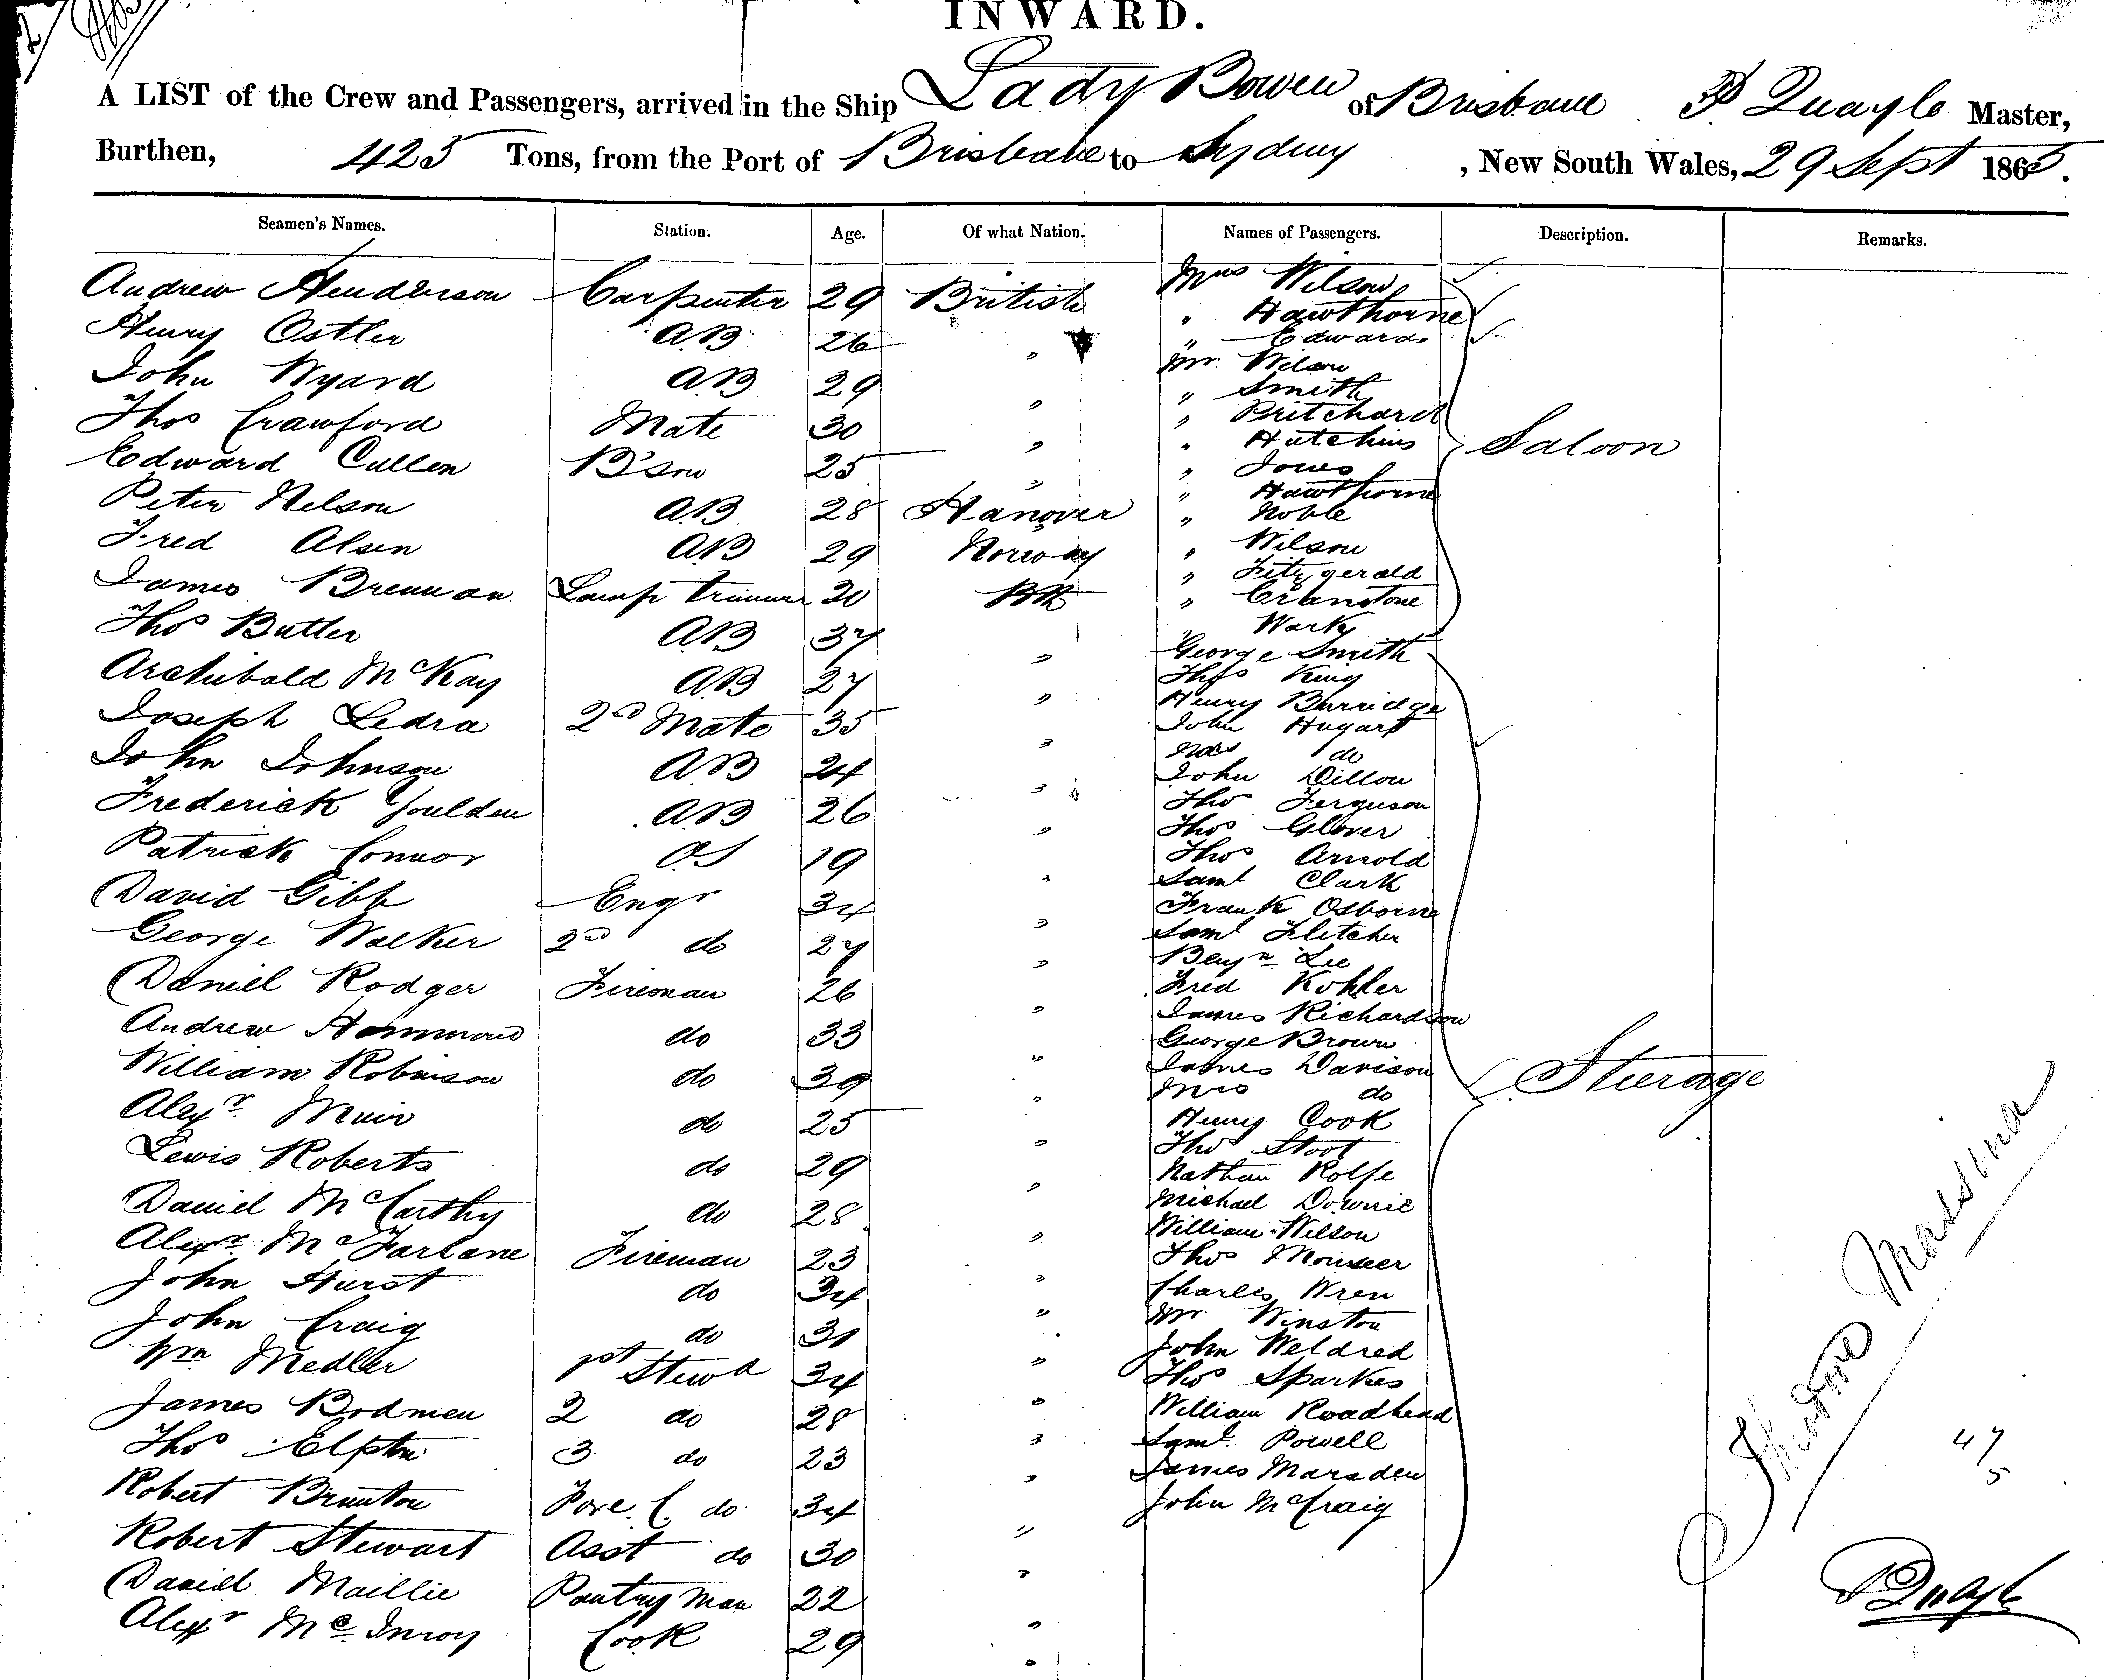 INWARD.
A LIST of the Crew and Passengers, arrived in the Ship Lady Bowen of Brisbane P Quayle Master,
Burthen, 425 Tons, from the Port of Brisbane to Sydney, New South Wales, 29 Sept 1865.
Seamen's Names. Station. Age. Of what Nation. Names of Passengers. Description. Remarks.
Andrew Henderson Carpenter 29 British
Henry Ostler AB 26 "
John Wyard AB 29 "
Thos Crawford Mate 30 "
Edward Cullen B'son 25 "
Peter Nelson AB 28 Hanover
Fred Alsen AB 29 Norway
James Brennan Lamp trimmer 20 Bth
Thos Butler AB 37 "
Archibald McKay AB 27 "
Joseph Ledra 2nd Mate 35 "
John Johnson AB 24 "
Frederick Goulden AB 26 "
Patrick Connor OS 19 "
David Gibb Engr 34 "
George Walker 2nd do 27 "
Daniel Rodger Fireman 26 "
Andrew Hammond do 33 "
William Robinson do 39 "
Alexr Muir do 25 "
Lewis Roberts do 29 "
Daniel McCarthy do 28 "
Alexr McFarlane Fireman 23 "
John Hurst do 34 "
John Craig do 31 "
Wm Medler 1st Stewd 34 "
James Bodmen 2 do 28 "
Thos 3 do 23 "
Robert Brunton Fore C. do 34 "
Robert Stewart Asst do 30 "
David Maillie Pantry man 22 "
Alexr McInroy Cook 29 "
Mrs Wilson
" Hawthorne
" Edwards
Mr Wilson
" Smith
" Pritchard
" Hutchins
" Jones
" Hawthorne
" Noble
" Wilson
" Fitzgerald
" Cranstone
" Warky
Saloon
George Smith
Thos King
Henry Burridge
John Hugart
Mrs do
John Dillon
Thos Ferguson
Thos Glover
Thos Arnold
Saml Clark
Frank Osborne
Saml Fletcher
Benjn Lee
Fred Kohler
James Richardson
George Brown
James Davison
Mrs do
Henry Cook
Thos Stoot
Nathan Rolfe
Michael Downie
William Wilson
Thos
Charles Wren
Mr Winston
John Weldred
Thos Sparkes
William Roadhead
Saml Powell
James Marsden
John McCraig
Steerage
47
5
P Quayle